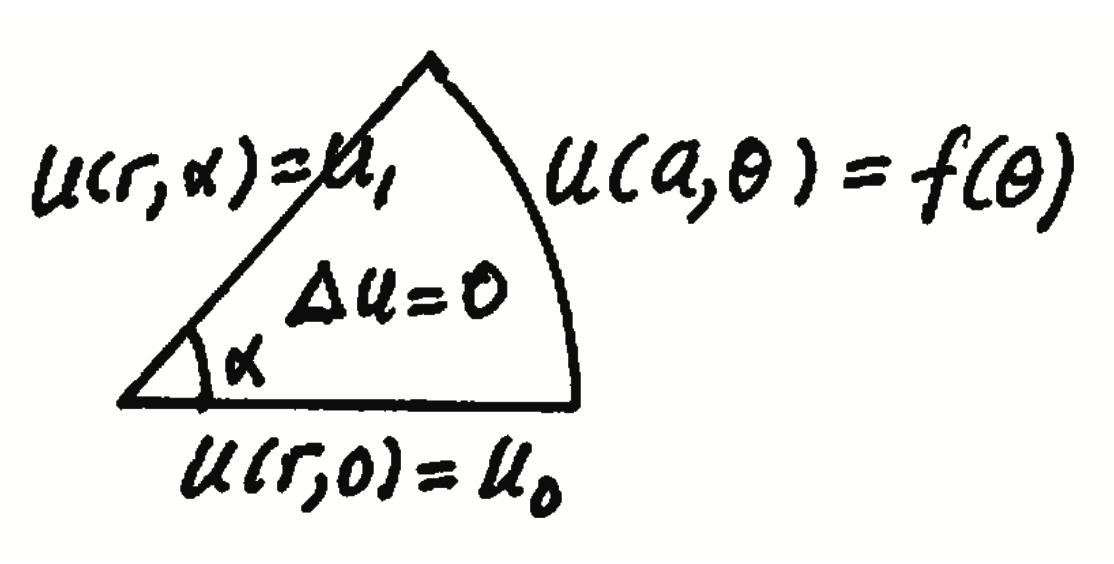 u(r,α)=u₁
u(a,θ)=f(θ)
Δu=0
α
u(r,0)=u₀